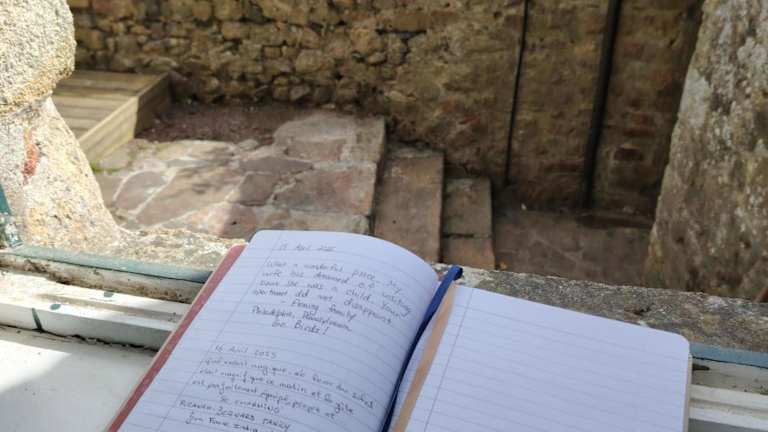 15 April 2025
What a wonderful place. My
wife has dreamed of visiting
since she was a child. Your
apartment did not disappoint
- Fleming family
Philadelphia, Pennsylvania
Go Birds!
16 Avril 2025
Quel endroit magique. Le lever du soleil
était magnifique ce matin et le gîte
est parfaitement équipé, propre et
SE CHARMING
BERNARD
from